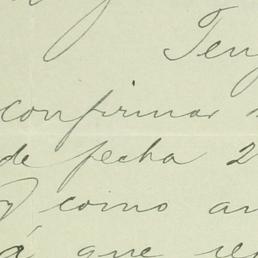 Ten
confirmar
de fecha 2
y como an
á que